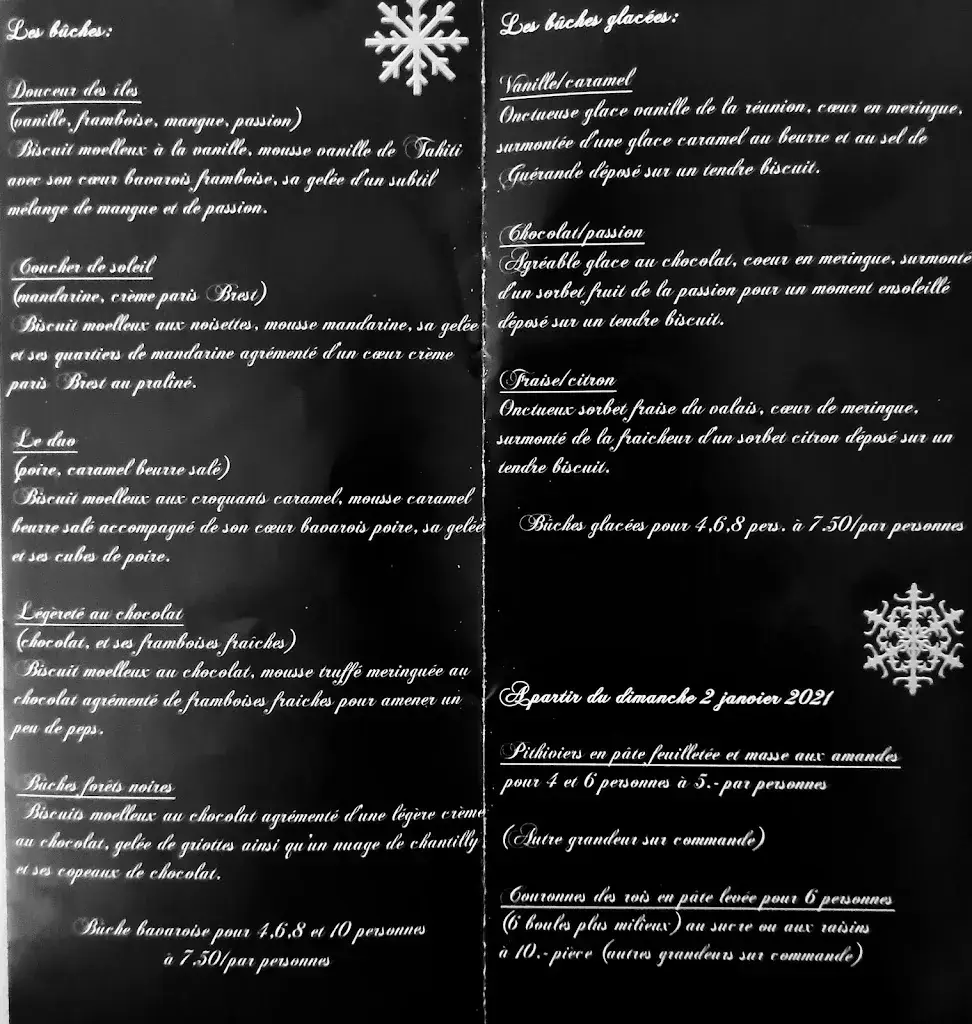 Les bûches:
Douceur des iles
(vanille, framboise, mangue, passion)
Biscuit moelleux à la vanille, mousse vanille de Tahiti
avec son cœur bavarois framboise, sa gelée d'un subtil
mélange de mangue et de passion.
Coucher de soleil
(mandarine, crème paris Brest)
Biscuit moelleux aux noisettes, mousse mandarine, sa gelée
et ses quartiers de mandarine agrémenté d'un cœur crème
paris Brest au praliné.
Le duo
(poire, caramel beurre salé)
Biscuit moelleux aux croquants caramel, mousse caramel
beurre salé accompagné de son cœur bavarois poire, sa gelée
et ses cubes de poire.
Légèreté au chocolat
(chocolat, et ses framboises fraîches)
Biscuit moelleux au chocolat, mousse truffé meringuée au
chocolat agrémenté de framboises fraiches pour amener un
peu de peps.
Bûches forêts noires
Biscuits moelleux au chocolat agrémenté d'une légère crème
au chocolat, gelée de griottes ainsi qu'un nuage de chantilly
et ses copeaux de chocolat.
Bûche bavaroise pour 4,6,8 et 10 personnes
à 7.50/par personnes
Les bûches glacées:
Vanille/caramel
Onctueuse glace vanille de la réunion, cœur en meringue,
surmontée d'une glace caramel au beurre et au sel de
Guérande déposé sur un tendre biscuit.
Chocolat/passion
Agréable glace au chocolat, coeur en meringue, surmonté
d'un sorbet fruit de la passion pour un moment ensoleillé
déposé sur un tendre biscuit.
Fraise/citron
Onctueux sorbet fraise du valais, cœur de meringue,
surmonté de la fraicheur d'un sorbet citron déposé sur un
tendre biscuit.
Bûches glacées pour 4,6,8 pers. à 7.50/par personnes
A partir du dimanche 2 janvier 2021
Pithiviers en pâte feuilletée et masse aux amandes
pour 4 et 6 personnes à 5.-par personnes
(Autre grandeur sur commande)
Couronnes des rois en pâte levée pour 6 personnes
(6 boules plus milieux) au sucre ou aux raisins
à 10.-pièce (autres grandeurs sur commande)